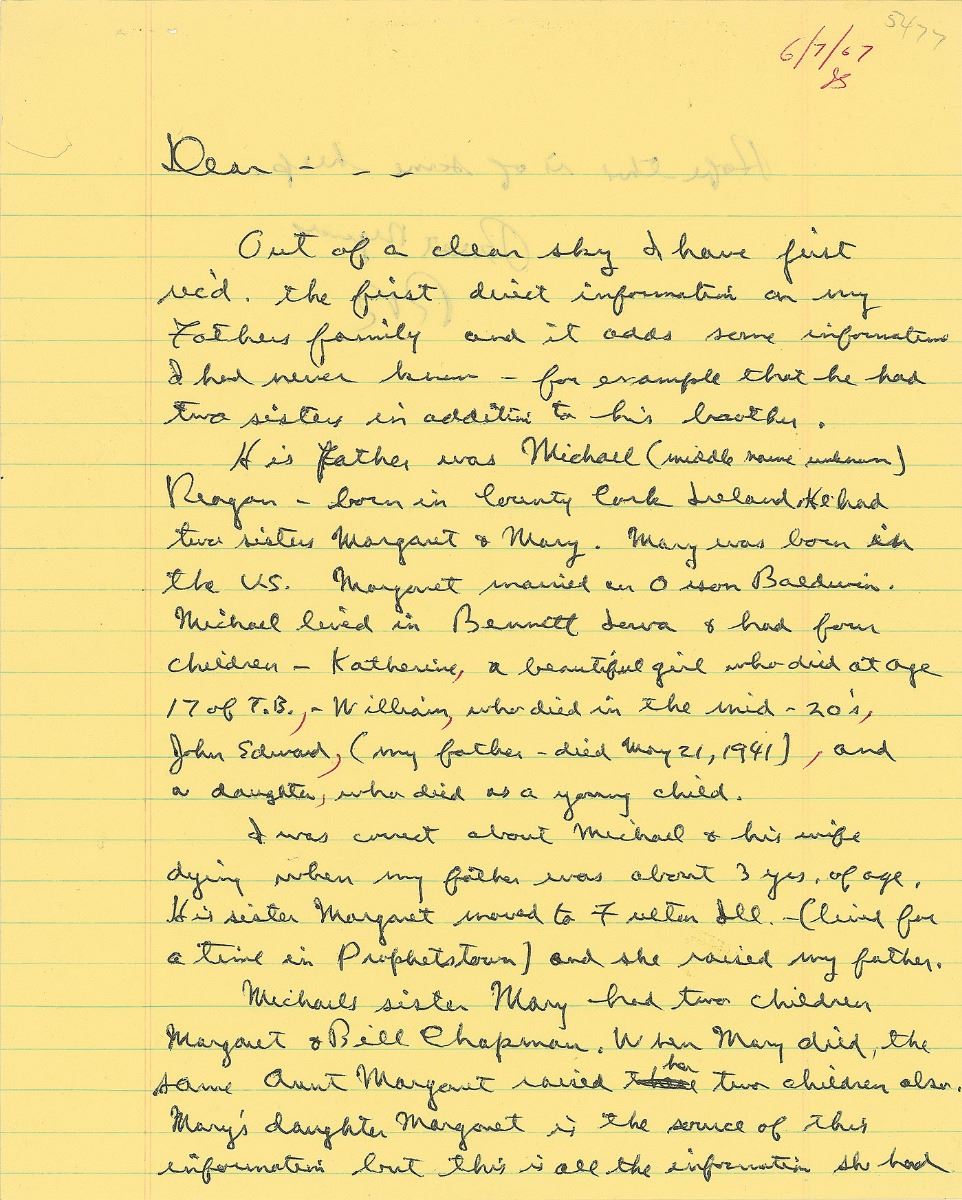 5477
6/7/67
Dear - - -
Out of a clear sky I have just
rec'd. the first direct information on my
Fathers family and it adds some information
I had never known - for example that he had
two sisters in addition to his brother.
His father was Michael (middle name unknown)
Reagan - born in County Cork Ireland. He had
two sisters Margaret & Mary. Mary was born in
the U.S. Margaret married an Orson Baldwin.
Michael lived in Bennett Iowa & had four
children - Katherine, a beautiful girl who died at age
17 of T.B., - William, who died in the mid-20's,
John Edward, (my father - died May 21, 1941), and
a daughter, who died as a young child.
I was correct about Michael & his wife
dying when my father was about 3 yrs. of age.
His sister Margaret moved to Fulton Ill. - (lived for
a time in Prophetstown) and she raised my father.
Michaels sister Mary had two children
Margaret & Bill Chapman. When Mary died, the
same Aunt Margaret raised her two children also.
Mary's daughter Margaret is the source of this
information but this is all the information she had